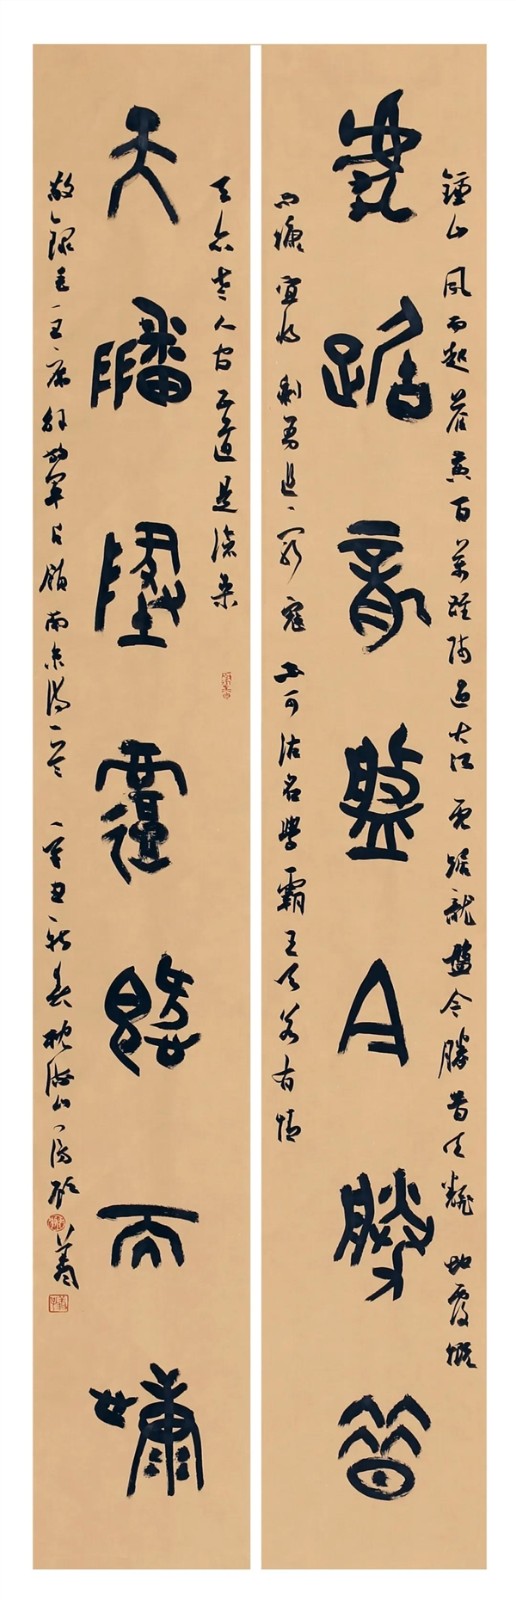 鍾山風雨起蒼黃百萬雄師過大江虎踞龍盤今勝昔天翻地覆慨
虎踞龍盤今勝昔
而慷宜將剩勇追窮寇不可沽名學霸王天若有情
天亦老人間正道是滄桑
天翻地覆慨而慷
敬錄毛主席解放軍占領南京詩一首 辛丑新春